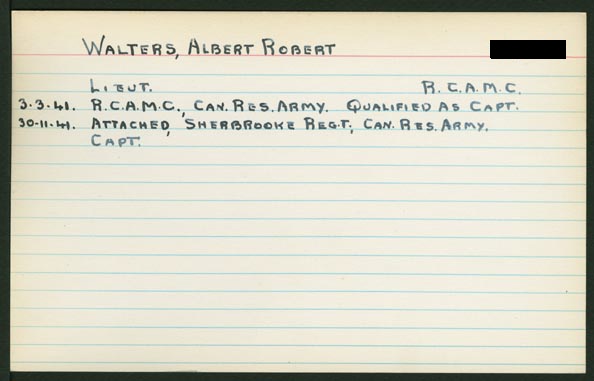 WALTERS, ALBERT ROBERT
LIEUT. R.C.A.M.C.
3.3.41. R.C.A.M.C., CAN. RES. ARMY. QUALIFIED AS CAPT.
30-11-41. ATTACHED, SHERBROOKE REGT., CAN. RES. ARMY.
CAPT.